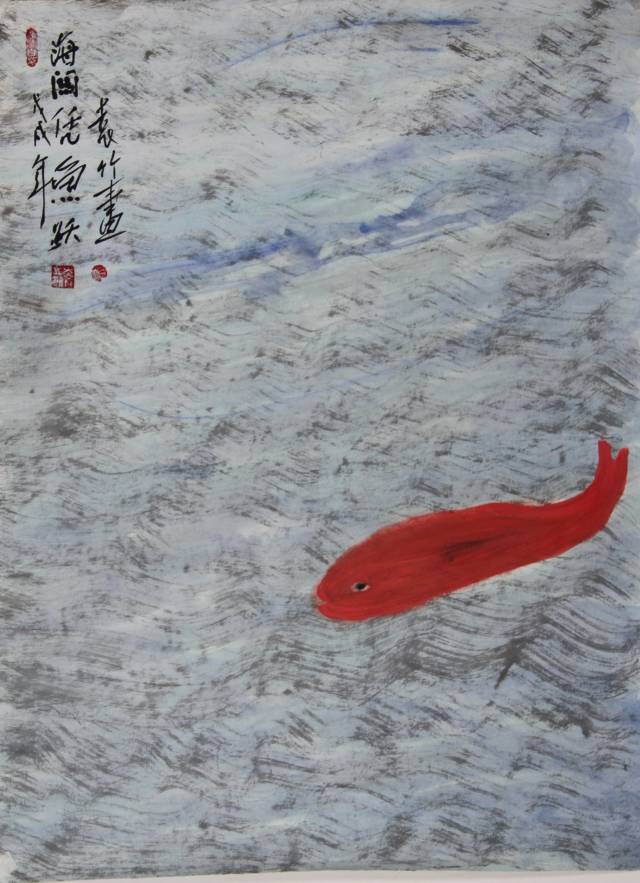 海阔凭鱼跃
戊戌年
袁竹畫